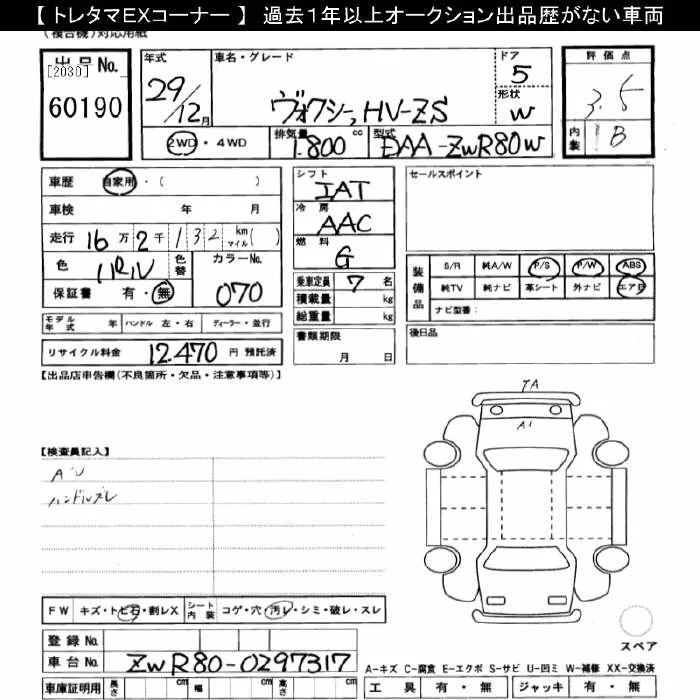 【トレタマEXコーナー】 過去1年以上オークション出品歴がない車両
(複合機)対応用紙
出品No.
[2030]
60190
年式 29/12月
車名・グレード ヴォクシー HV-ZS
ドア 5
形状 W
評価点 3.5
内装 B
2WD・4WD
排気量 1.800 cc
型式 DAA-ZWR80W
車歴 自家用・( )
車検 年 月
走行 16万2千132 km マイル( )
色 パール 色替 カラーNo. 070
保証書 有・無
シフト IAT
冷房 AAC
燃料 G
乗車定員 7 名
積載量 kg
総重量 kg
書類期限
月 日
セールスポイント
装備品
S/R 純A/W P/S P/W ABS
純TV 純ナビ 革シート 外ナビ エアB
ナビ型番:
後日品
モデル年式 年 ハンドル 左・右 ディーラー・並行
リサイクル料金 12.470 円 預託済
【出品店申告欄(不良箇所・欠品・注意事項等)】
【検査員記入】
AU
ハンドルズレ
A1
FW キズ・トビ石・割レX シート内装 コゲ・穴・汚レ・シミ・破レ・スレ
登録No.
車台No. ZWR80-0297317
車庫証明用 長さ cm 幅 cm 高さ cm
スペア
A-キズ C-腐食 E-エクボ S-サビ U-凹ミ W-補修 XX-交換済
工具 有・無 ジャッキ 有・無